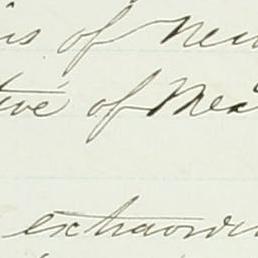 is of New
tive of Mea
extraordi